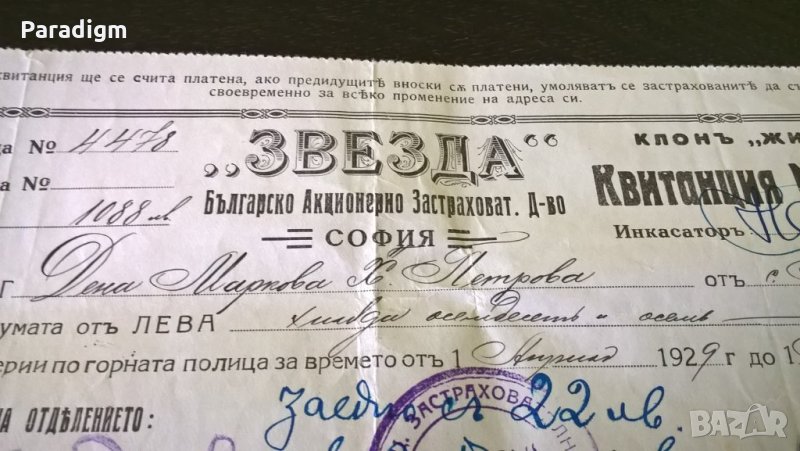 Paradigm
квитанция ще се счита платена, ако предидущитѣ вноски сѫ платени, умоляватъ се застрахованитѣ да съ
своевременно за всѣко променение на адреса си.
ца № 4478
„ЗВЕЗДА“
КЛОНЪ „ЖИ
а №
Квитанция
1088 лв
Българско Акционерно Застраховат. Д-во
СОФИЯ
Инкасаторъ
Г Дена Маркова Х. Петрова отъ с.
умата отъ ЛЕВА хиляда осемдесеть и осемь
ерии по горната полица за времето отъ 1 Априлий 1929 г до 19
НА ОТДѢЛЕНИЕТО:
заедно с 22 лв.
ЗАСТРАХОВА
BAZAR